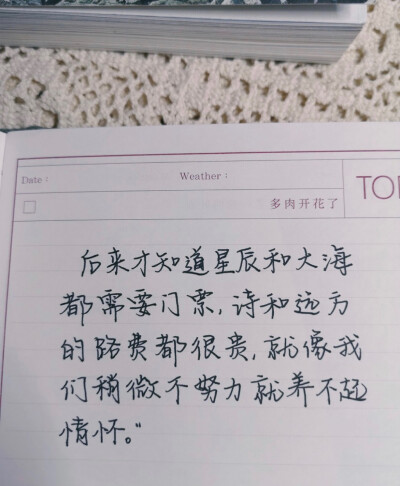 Date：
Weather：
多肉开花了
后来才知道星辰和大海
都需要门票,诗和远方
的路费都很贵,就像我
们稍微不努力就养不起
情怀。"